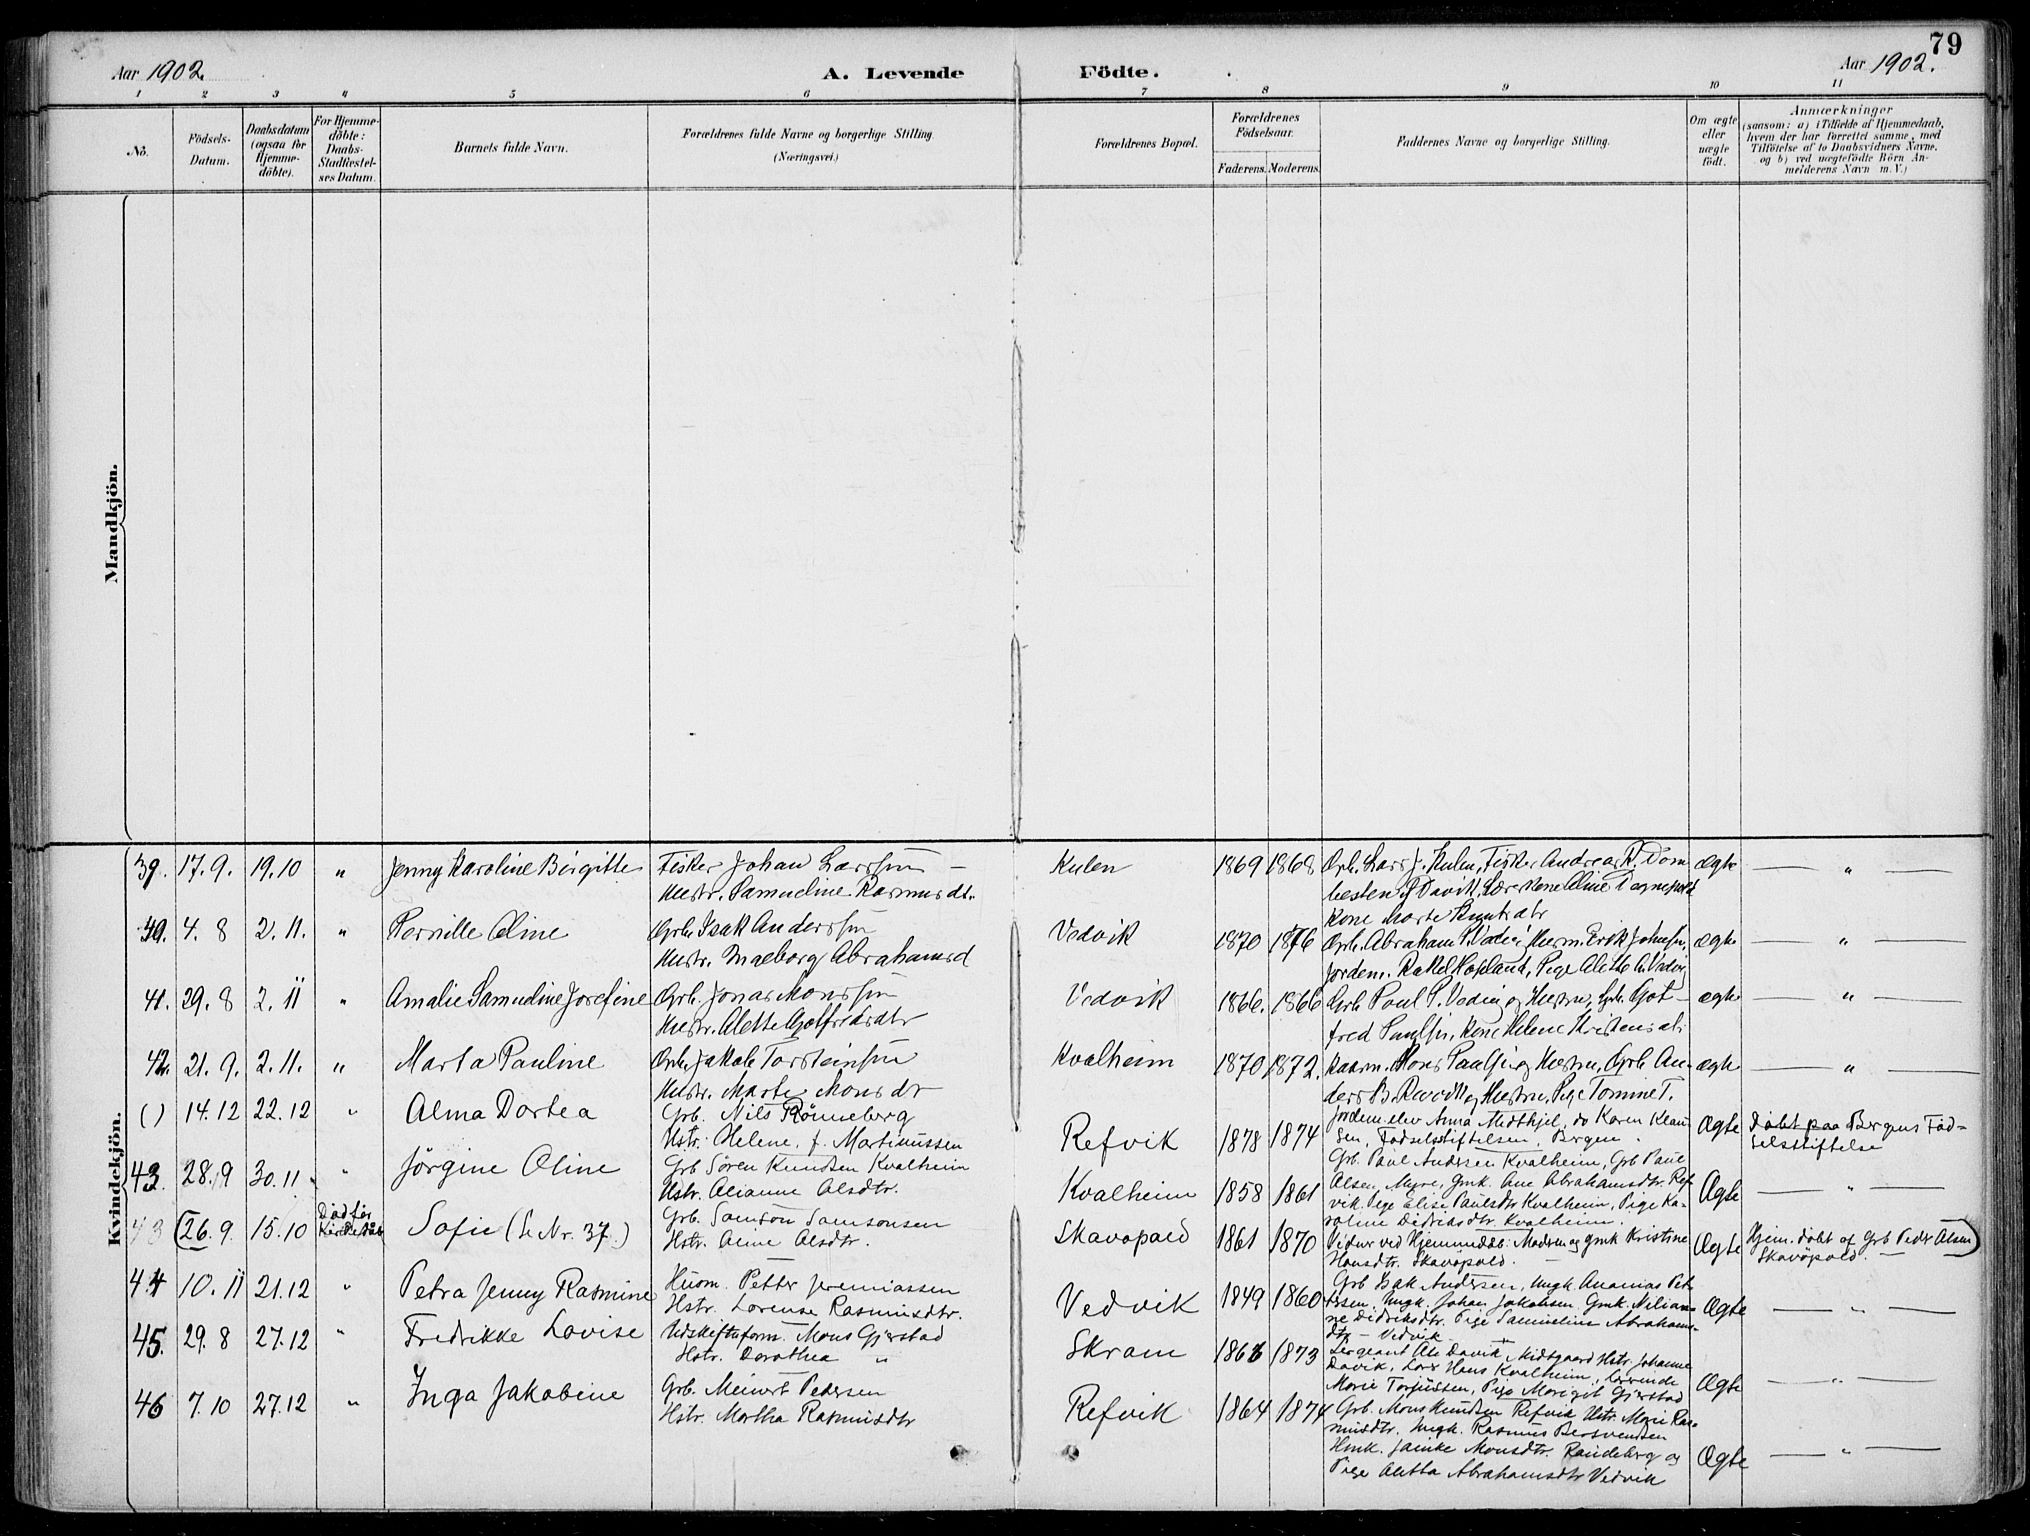 79
Aar 1902. A. Levende Födte. Aar 1902.
1 2 3 4 5 6 7 8 9 10 11
No.
Födsels-
Datum.
Daabsdatum
(ogsaa for
Hjemme-
döbte).
For Hjemme-
döbte:
Daabs-
Stadfæstel-
ses Datum.
Barnets fulde Navn.
Forældrenes fulde Navne og borgerlige Stilling.
(Næringsvei.)
Forældrenes Bopæl.
Forældrenes
Födselsaar.
Faderens. Moderens.
Faddernes Navne og borgerlige Stilling.
Om ægte
eller
uægte
født.
Anmærkninger
(saasom: a) i Tilfælde af Hjemmedaab,
hvem der har forrettet samme, med
Tilföielse af to Daabsvidners Navne,
og b) ved uægtefödte Börn An-
melderens Navn m.V.)
Mandkjön.
Kvindekjön.
39. 17.9. 19.10 " Jenny Karoline Birgitte
Fisker Johan Larssøn
Hustr. Samueline Rasmusdt.
Kulen 1869 1868
Grb. Lars J. Kulen, Fisker Andreas R. Dom
besten, Davik, Kone Oline
Kone Marte Knutsdtr
ægte "
40. 4.8 2.11. " Pernille Oline
Grb. Isak Anderssøn
Hustr. Ingeborg Abrahamsd
Vedvik 1870 1876
Grb. Abraham Hustru Erik Johnsn,
Jordem. Rakel Hopland, Pige Alette A. Vedvig
ægte "
41. 29.8 2.11 " Amalie Samueline Josefine
Grb. Jonas Monssøn
Hustr. Alette Gotfredsdtr
Vedvik 1866. 1866
Grb Paul P. Vedvig og Hustru, Grb. Got-
fred Paulsn, Kone Helene Kristensdt.
ægte "
42. 21.9. 2.11. " Marta Pauline
Grb. Jakob Torsteinsøn
Hustr. Marte Monsdr
Kvalheim 1870 1872.
Mons Paulsn og Hustru, Grb. An-
ders B. og Hustru, Pige Tomine T.
ægte "
() 14.12 22.12 " Alma Dortea
Grb. Nils Rønneberg
Hstr. Helene, f. Martinussen
Refvik 1878 1874
Jordem.elev Anna Midthjel, do Karen Klau-
sen, Fødselsstiftelsen, Bergen.
Ægte Døbt paa Bergens Fød-
selsstiftelse
43. 28.9 30.11 " Jörgine Oline
Grb Sören Knudsen Kvalheim
Hstr. Olianne Olsdtr.
Kvalheim 1858 1861
Grb. Paul Andersen Kvalheim, Grb Paul
Olsen, Myre, Gmk. Ane Abrahamsdtr. Ref
vik. Pige Elise Paulsdtr Kvalheim, Pige Ka-
roline Didriksdtr. Kvalheim.
Ægte "
43 (26.9. 15.10 Död før
Kirkedåb Sofie (Se Nr. 37.)
Grb. Samson Samsonsen
Hstr. Oline Olsdtr.
Skavøpold 1861 1870
Vidner ved Hjemmedåb: Moderen og gmk Kristine
Hansdtr. Skavøpold.
Ægte Hjem. döbt af Grb Peder Olsen)
Skavöpold.
44 10.11 21.12 " Petra Jenny Rasmine
Husm. Petter Jeremiassen
Hstr. Lorense Rasmusdtr.
Vedvik 1849 1860
Grb Isak Andersen, Ungk. Ananias Pet-
ersen, Ungk. Johan Jakobsen, Gmk. Nilian-
ne Didriksdtr. Pige Samueline Abrahams-
dtr - Vedvik
Ægte "
45. 29.8 27.12 " Fredrikke Lovise
Udskiftsform. Mons Gjerstad
Hstr. Dorothea "
Skram 1866 1873
Sergeant Ole Davik, Midtgaard Hstr. Johanne
Davik, Hans Kvalheim, Lærerinde
Marie Torjussen, Pige Marigit Gjerstad
Ægte "
46 7.10 27.12 " Inga Jakobine
Grb. Meinert Pedersen
Hstr. Martha Rasmusdtr
Refvik 1864 1874
Grb. Mons Knudsen Refvik Hstr. Marie Ras-
musdtr. Ungk. Rasmus Bersvendsen
Hmk. Janike Monsdtr. Randeberg og
Pige Aletta Abrahamsdtr Vedvik
Ægte "